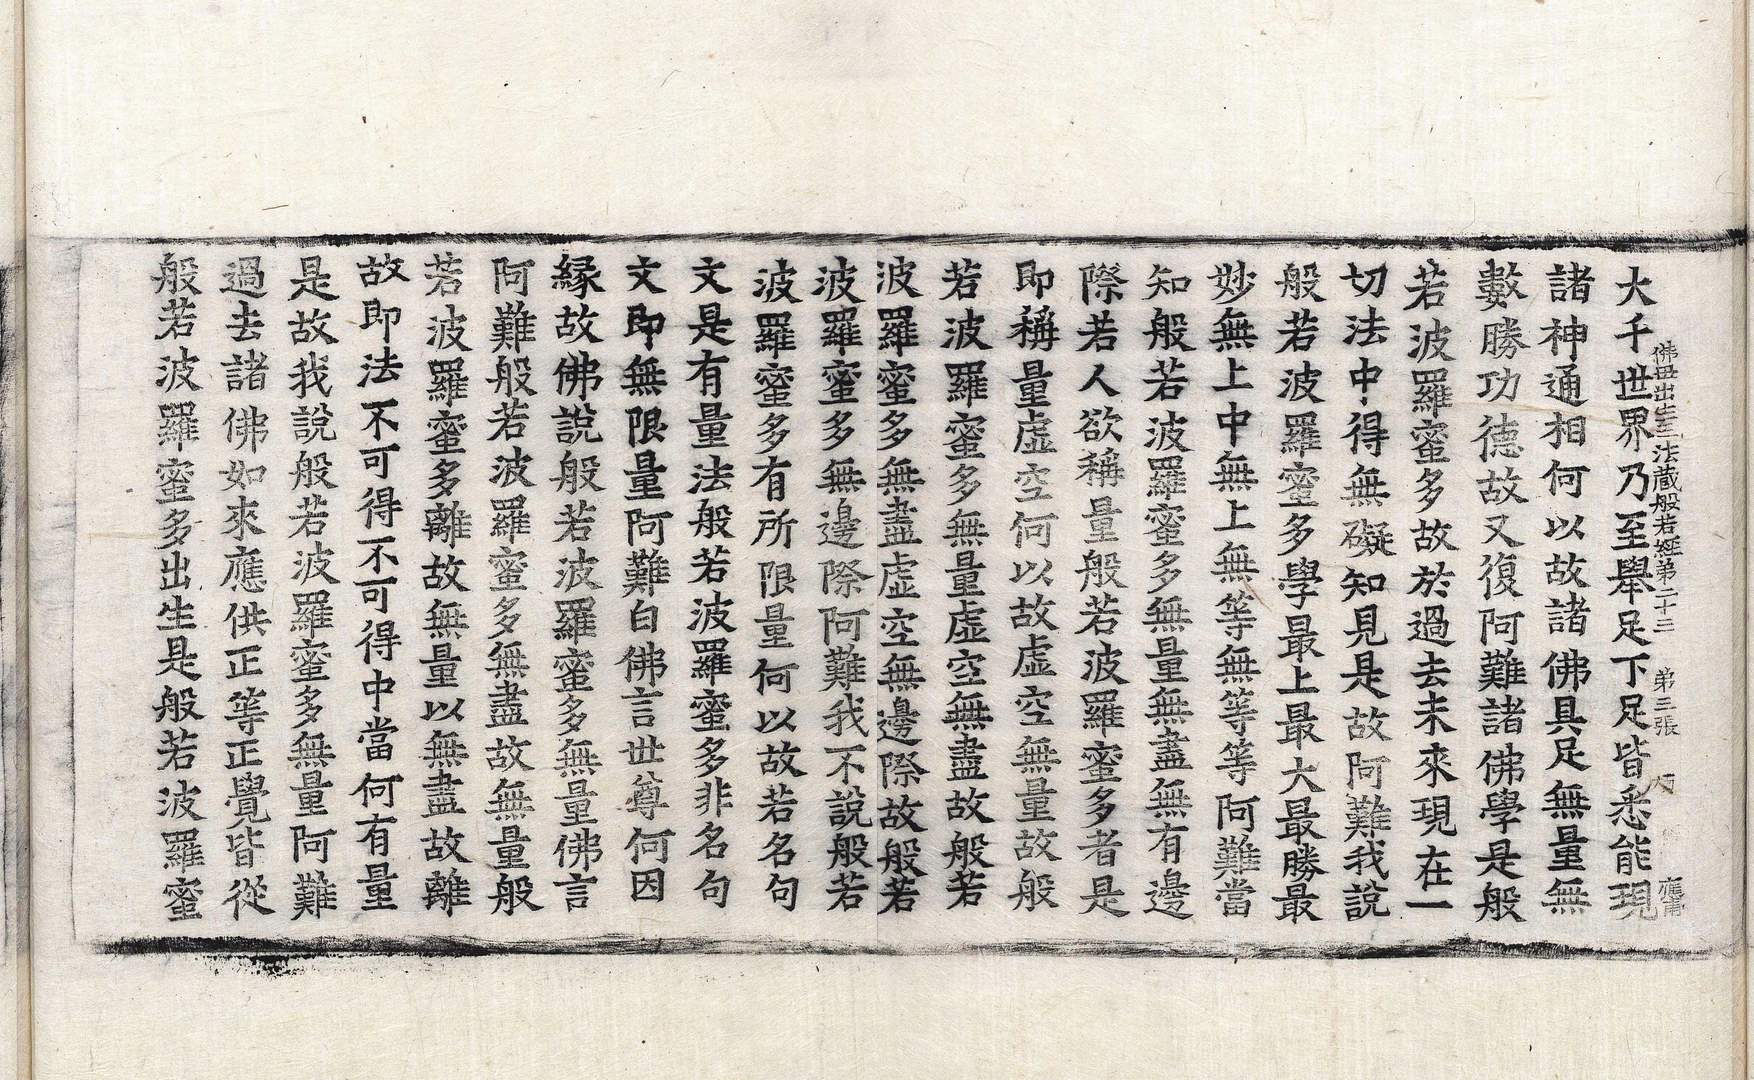 大千世界乃至舉足下足皆悉能現
佛母出生三法藏般若經第二十三　第三張
諸神通相何以故諸佛具足無量無
數勝功德故又復阿難諸佛學是般
若波羅蜜多故於過去未來現在一
切法中得無礙知見是故阿難我說
般若波羅蜜多學最上最大最勝最
妙無上中無上無等無等等阿難當
知般若波羅蜜多無量無盡無有邊
際若人欲稱量般若波羅蜜多者是
即稱量虛空何以故虛空無量故般
若波羅蜜多無量虛空無盡故般若
波羅蜜多無盡虛空無邊際故般若
波羅蜜多無邊際阿難我不說般若
波羅蜜多有所限量何以故若名句
文是有量法般若波羅蜜多非名句
文即無限量阿難白佛言世尊何因
緣故佛說般若波羅蜜多無量佛言
阿難般若波羅蜜多無盡故無量般
若波羅蜜多離故無量以無盡故離
故即法不可得不可得中當何有量
是故我說般若波羅蜜多無量阿難
過去諸佛如來應供正等正覺皆從
般若波羅蜜多出生是般若波羅蜜